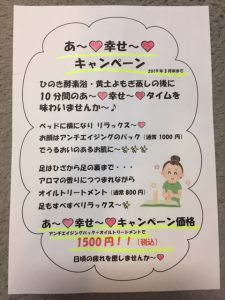 あ～❤幸せ～❤
キャンペーン
2019年3月末まで
ひのき酵素浴・黄土よもぎ蒸しの後に
10分間のあ～❤幸せ❤タイムを
味わいませんか～♪
ベッドに横になり リラックス～❤
お顔はアンチエイジングのパック（通常 1000円）
でうるおいのあるお肌に～
足はひざから足の裏まで・・・
アロマの香りにつつまれながら
オイルトリートメント（通常 800円）
足もすべすべリラックス～
あ～❤幸せ～❤キャンペーン価格
アンチエイジングパック＋オイルトリートメントで
1500円！！（税込）
日頃の疲れを癒しませんか～❤